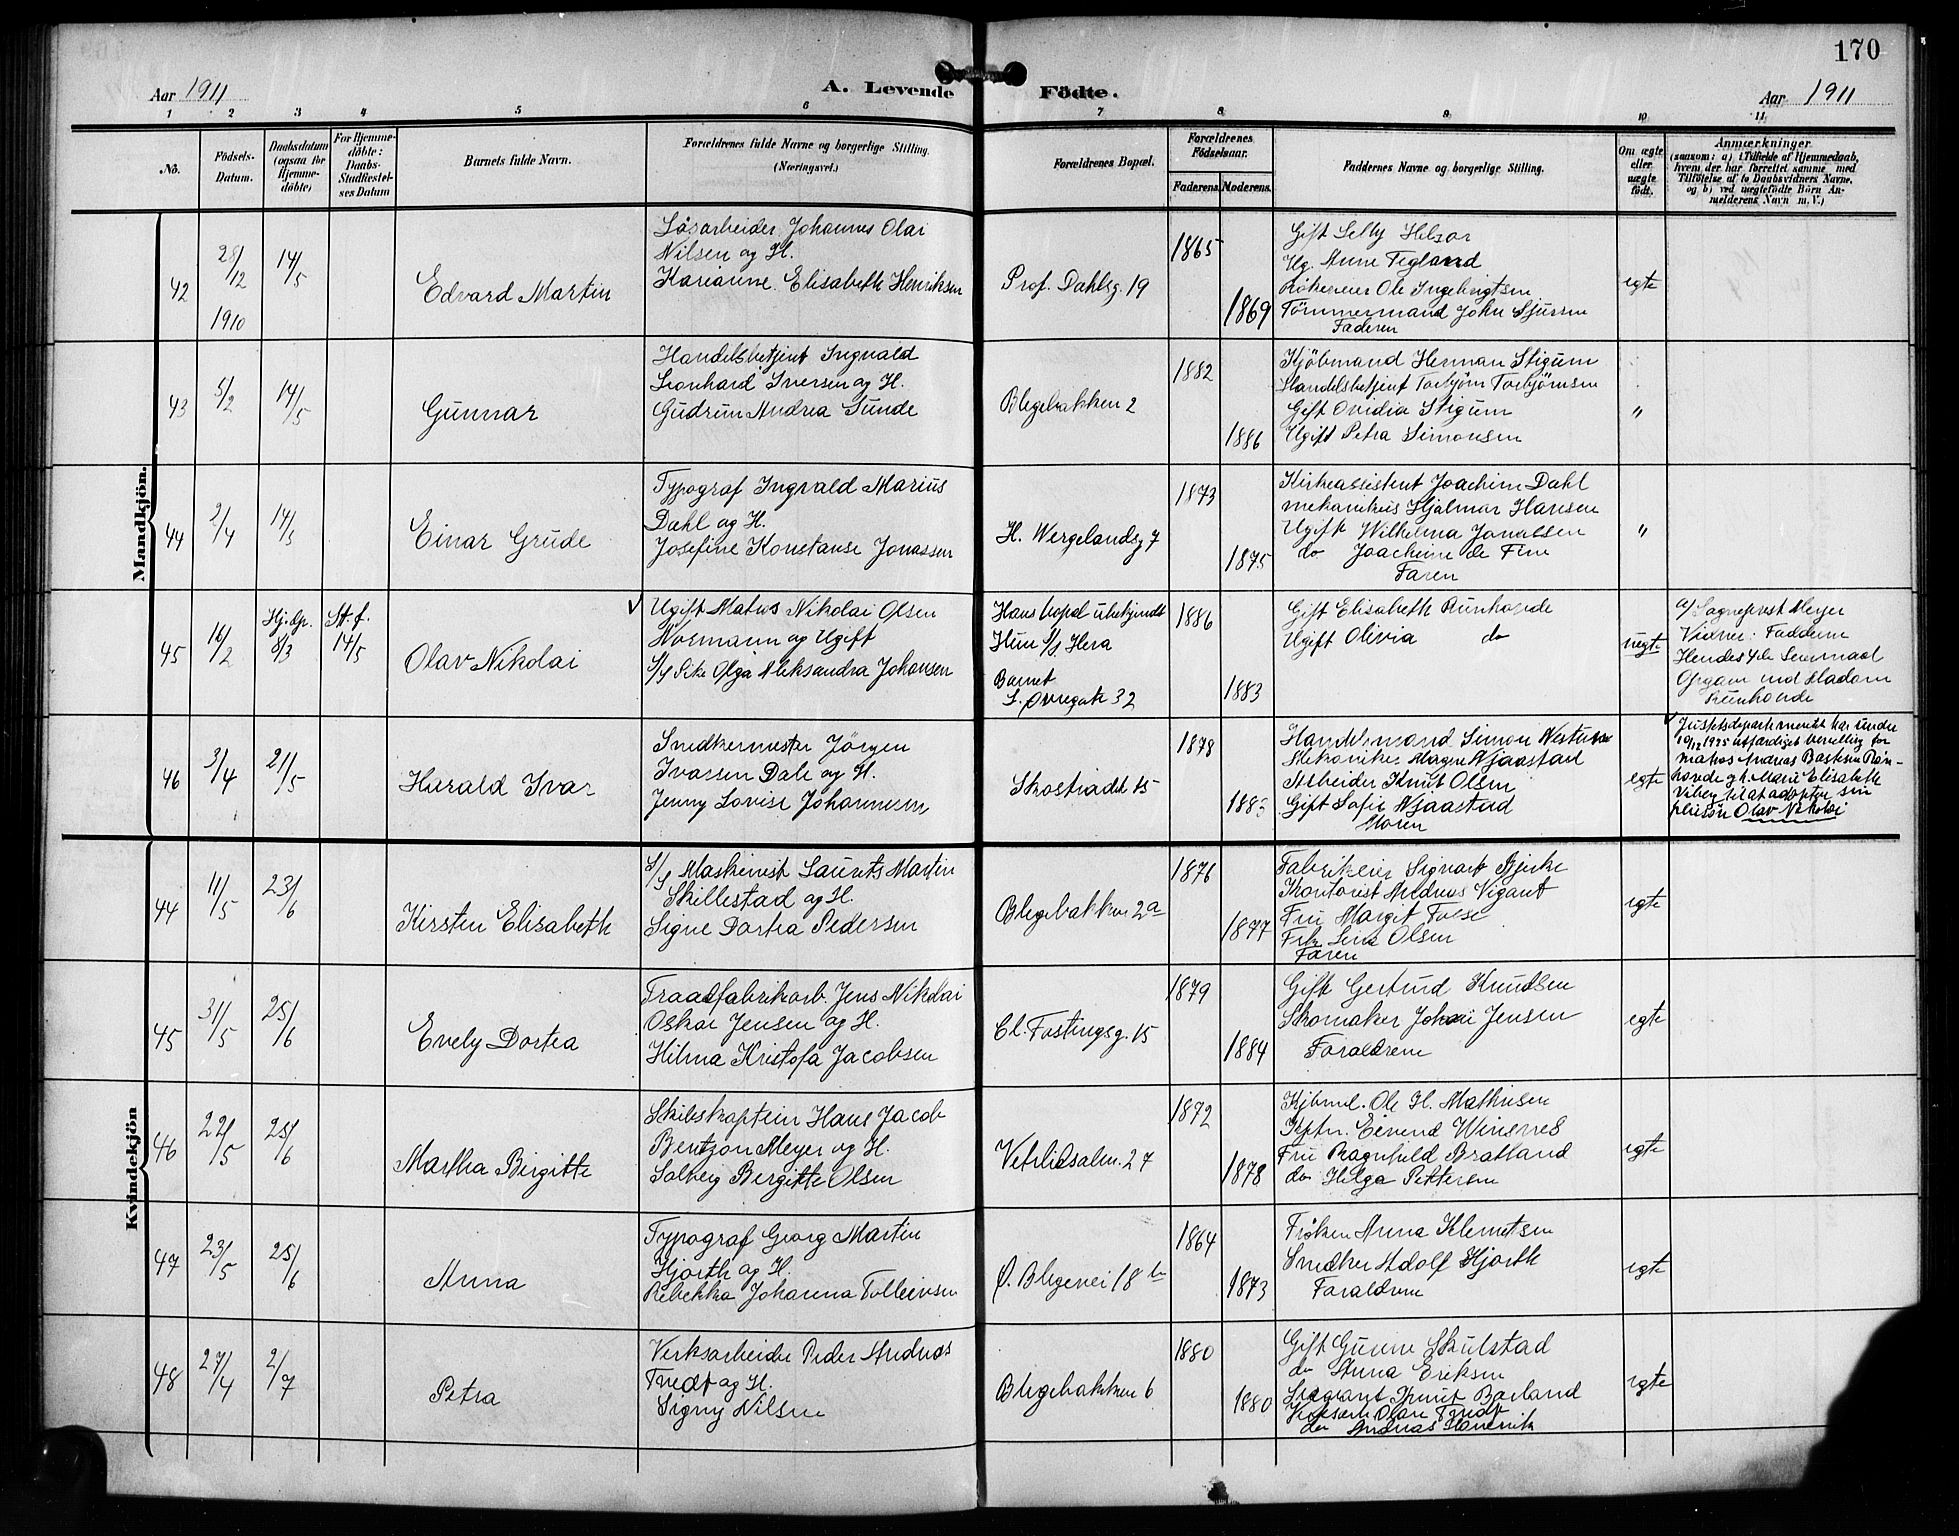 170
Aar 1911
A. Levende Födte.
Aar 1911
1 2 3 4 5 6 7 8 9 10 11
No.
Födsels-
Datum.
Daabsdatum
(ogsaa for
Hjemme-
döbte)
For Hjemme-
döbte:
Daabs-
Stadfæstel-
ses Datum
Barnets fulde Navn.
Forældrenes fulde Navne og borgerlige Stilling.
(Næringsvei.)
Forældrenes Bopæl.
Forældrenes
Födselsaar.
Faderens. Moderens.
Faddernes Navne og borgerlige Stilling.
Om ægte
eller
uægte
födt.
Anmærkninger
(saasom: a) i Tilfælde af Hjemmedaab,
hvem der har forrettet samme med
Tilföielse af to Daabsvidners Navne,
og b) ved uægtefödte Börn An-
melderens Navn m. V.)
Mandkjön.
42
28/12
1910
14/5
Edvard Martin
Løsarbeider Johannes Olai
Nilsen og H.
Karianne Elisabeth Henriksen
Prof. Dahlsg. 19
1865
1869
Gift Selly
Ug. Anne Tegland
Ole Ingebrigtsen
Tömmermand John Sjursen
Faderen
egte
43
5/2
14/5
Gunnar
Handelsbetjent Ingvald
Leonhard Iversen og H.
Gudrun Andrea Sunde
Blegebakken 2
1882
1886
Kjöbmand Herman Stigum
Handelsbetjent Torbjörn Torbjörnsen
Gift Ovidia Stigum
Ugift Petra Simonsen
"
44
2/4
14/5
Einar Grude
Typograf Ingvald Marius
Dahl og H.
Josefine Konstanse Jonassen
H. Wergelandsg 7
1873
1875
Kirkeassistent Joachim Dahl
mekanikus Hjalmar Hansen
Ugift Wilhelma Jonassen
do Joachime de Fine
Faren
"
45
16/2
Hj.dp.
8/3
St. f.
14/5
Olav Nikolai
Ugift Matros Nikolai Olsen
Nosmann og Ugift
Pike Olga Aleksandra Johansen
Hans bopel ubekjendt
Hun s/s Hera
Barnet
L. Øvregate 32
1886
1883
Gift Elisabeth Runhovde
Ugift Olivia do
uegte
a/ Sogneprest Meyer
Vidner: Faddern
Opgave ved Madam
Runhovde
46
3/4
21/5
Harald Ivar
Snedkermester Jörgen
Ivarsen Dale og H.
Jenny Lovise Johannesen
Skostrædt 15
1878
1883
Handelsmand Simon
Mekaniker Magne Njaastad
Arbeider Knut Olsen
Gift Sofie Njaastad
Moren
egte
Justisdepartementet har under
10/12 1925 utfærdiget bevilling for
Matros Andreas Run-
hovde og h. Marie Elisabeth
til at adoptere sin
pleiesøn Olav Nikolai
Kvindekjön
44
11/5
23/6
Kirsten Elisabeth
Maskinist Laurits Martin
Skillestad og H.
Signe Dortea Pedersen
Blegebakken 2a
1876
1877
Fabrikeier Sigvart Bjerke
Kontorist Andreas Vigant
Fru Margit
Frk Lina Olsen
Faren
egte
45
31/5
25/6
Evely Dortea
Traadfabrikarb. Jens Nikolai
Oskar Jensen og H.
Hilma Kristofa Jacobsen
Cl. Fastingsg. 15
1879
1884
Gift Gertrud Knudsen
Skomaker Johan Jensen
Foraldrene
egte
46
22/5
25/6
Martha Birgitte
Skibskaptein Hans Jacob
Bentzon Meyer og H.
Solveig Bergitte Olsen
Vetrlidsalm. 27
1872
1878
Kjbmd. Ole H. Mathisen
Kptn. Eivend Winsnes
Fru Ragnhild Bratland
do Helga Pettersen
egte
47
23/5
25/6
Anna
Typograf Georg Martin
Hjorth og H.
Rebekka Johanna Tolleivsen
Ø. Blegevei 18 b
1864
1873
Frøken Anna Klemetsen
Snedker Adolf Hjorth
Foraldrene
egte
48
27/4
2/7
Petra
Verksarbeider Peder Andreas
Tvedt og H.
Signy Nilsen
Blegebakken 6
1880
1880
Gift Gurine Skulstad
do Anna Eriksen
Knut Børland
Olav Tvedt
do Andreas
egte